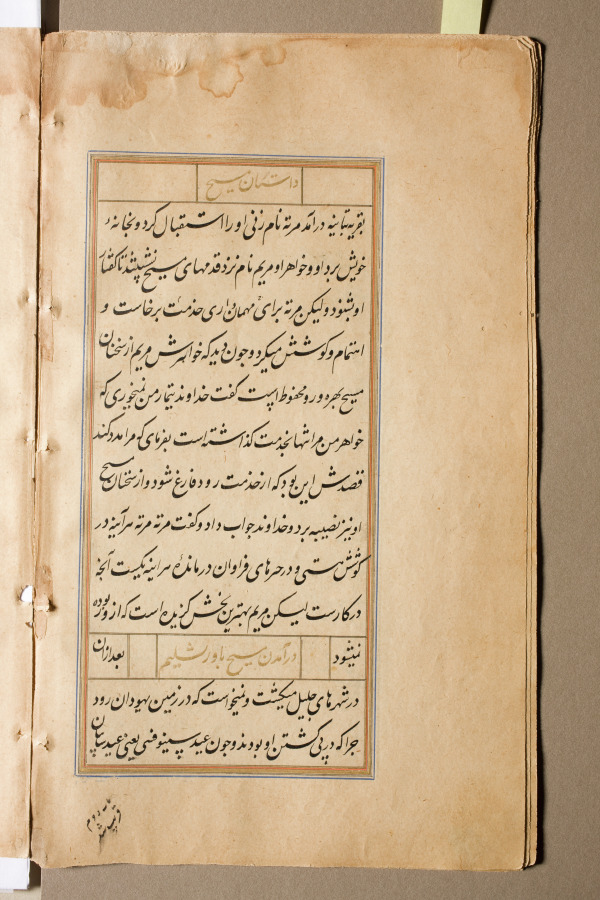 داستان مسیح
بقریه بتانیه درآمد مرته نام زنی او را استقبال کرد و بخانهٔ
خویش برد او و خواهر او مریم نام نزد قدمهای مسیح نشستند تا گفتار
او شنود و لیکن مرته برای مهمان داری خدمت برخاست و
اهتمام و کوشش میکرد و چون دید که خواهرش مریم از سخنان
مسیح بهره‌ور و محظوظ است گفت خداوند تیمار من نمیخوری که
خواهر من مرا تنها بخدمت گذاشته است بفرمای که مرا مدد کند
قصدش این بود که از خدمت زود فارغ شود و از سخنان مسیح
او نیز نصیبه برد و خداوند جواب داد و گفت مرته مرته هرآینه در
کوشش هستی و در چیزهای فراوان درماندهٔ هرآینه یکیست آنچه
در کارست لیکن مریم بهترین بخش گزیده است که ازو ربوده
نمیشود
درآمدن مسیح باورشلیم
بعد ازان
در شهرهای جلیل میگشت و نمیخواست که در زمین یهودان رود
چرا که در پی کشتن او بودند و چون عید سینوفنی یعنی عید